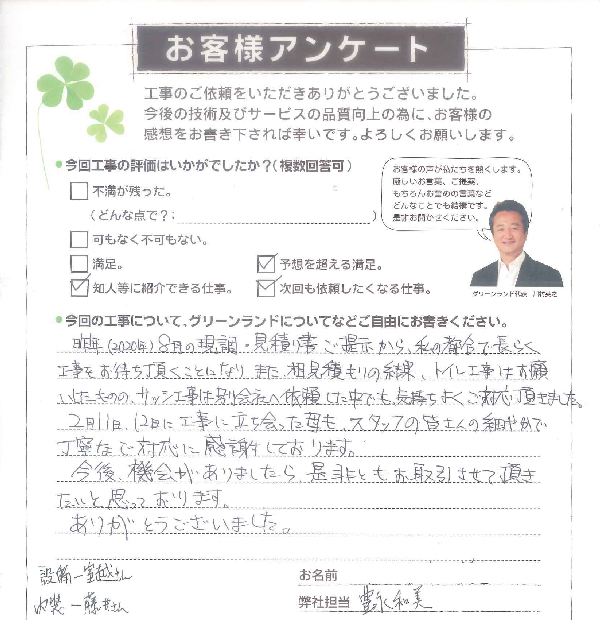 お客様アンケート
工事のご依頼をいただきありがとうございました。
今後の技術及びサービスの品質向上の為に、お客様の
感想をお書き下されば幸いです。よろしくお願いします。
今回工事の評価はいかがでしたか?(複数回答可)
不満が残った。
(どんな点で?: )
可もなく不可もない。
満足。
予想を超える満足。
知人等に紹介できる仕事。
次回も依頼したくなる仕事。
お客様の声が私たちを熱くします。
厳しいお言葉、ご提案、
もちろんお誉めの言葉など
どんなことでも結構です。
是非お聞かせください。
グリーンランド代表
今回の工事について、グリーンランドについてなどご自由にお書きください。
昨年(2020年)8月の現調・見積り書ご提示から、私の都合で長らく
工事をお待ち頂くことになり、また、相見積もりの結果、トイレ工事はお願
いしたものの、サッシ工事は別会社へ依頼した中でも、気持ちよくご対応頂きました。
2月11日、12日に工事に立ち会った母も、スタッフの皆さんの細やかで
丁寧なご対応に感謝しております。
今後、機会がありましたら、是非ともお取引させて頂き
たいと思っております。
ありがとうございました。
設備ー室越さん
内装ー藤井さん
お名前
弊社担当 豊永和美